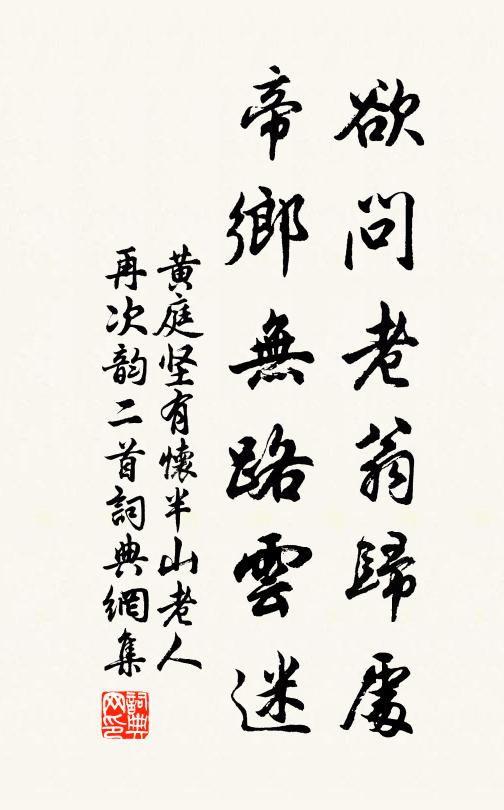 欲問老翁歸處
帝鄉無路雲迷
黄庭坚有懷半山老人
再次韵二首詞典網集
詞典
网印